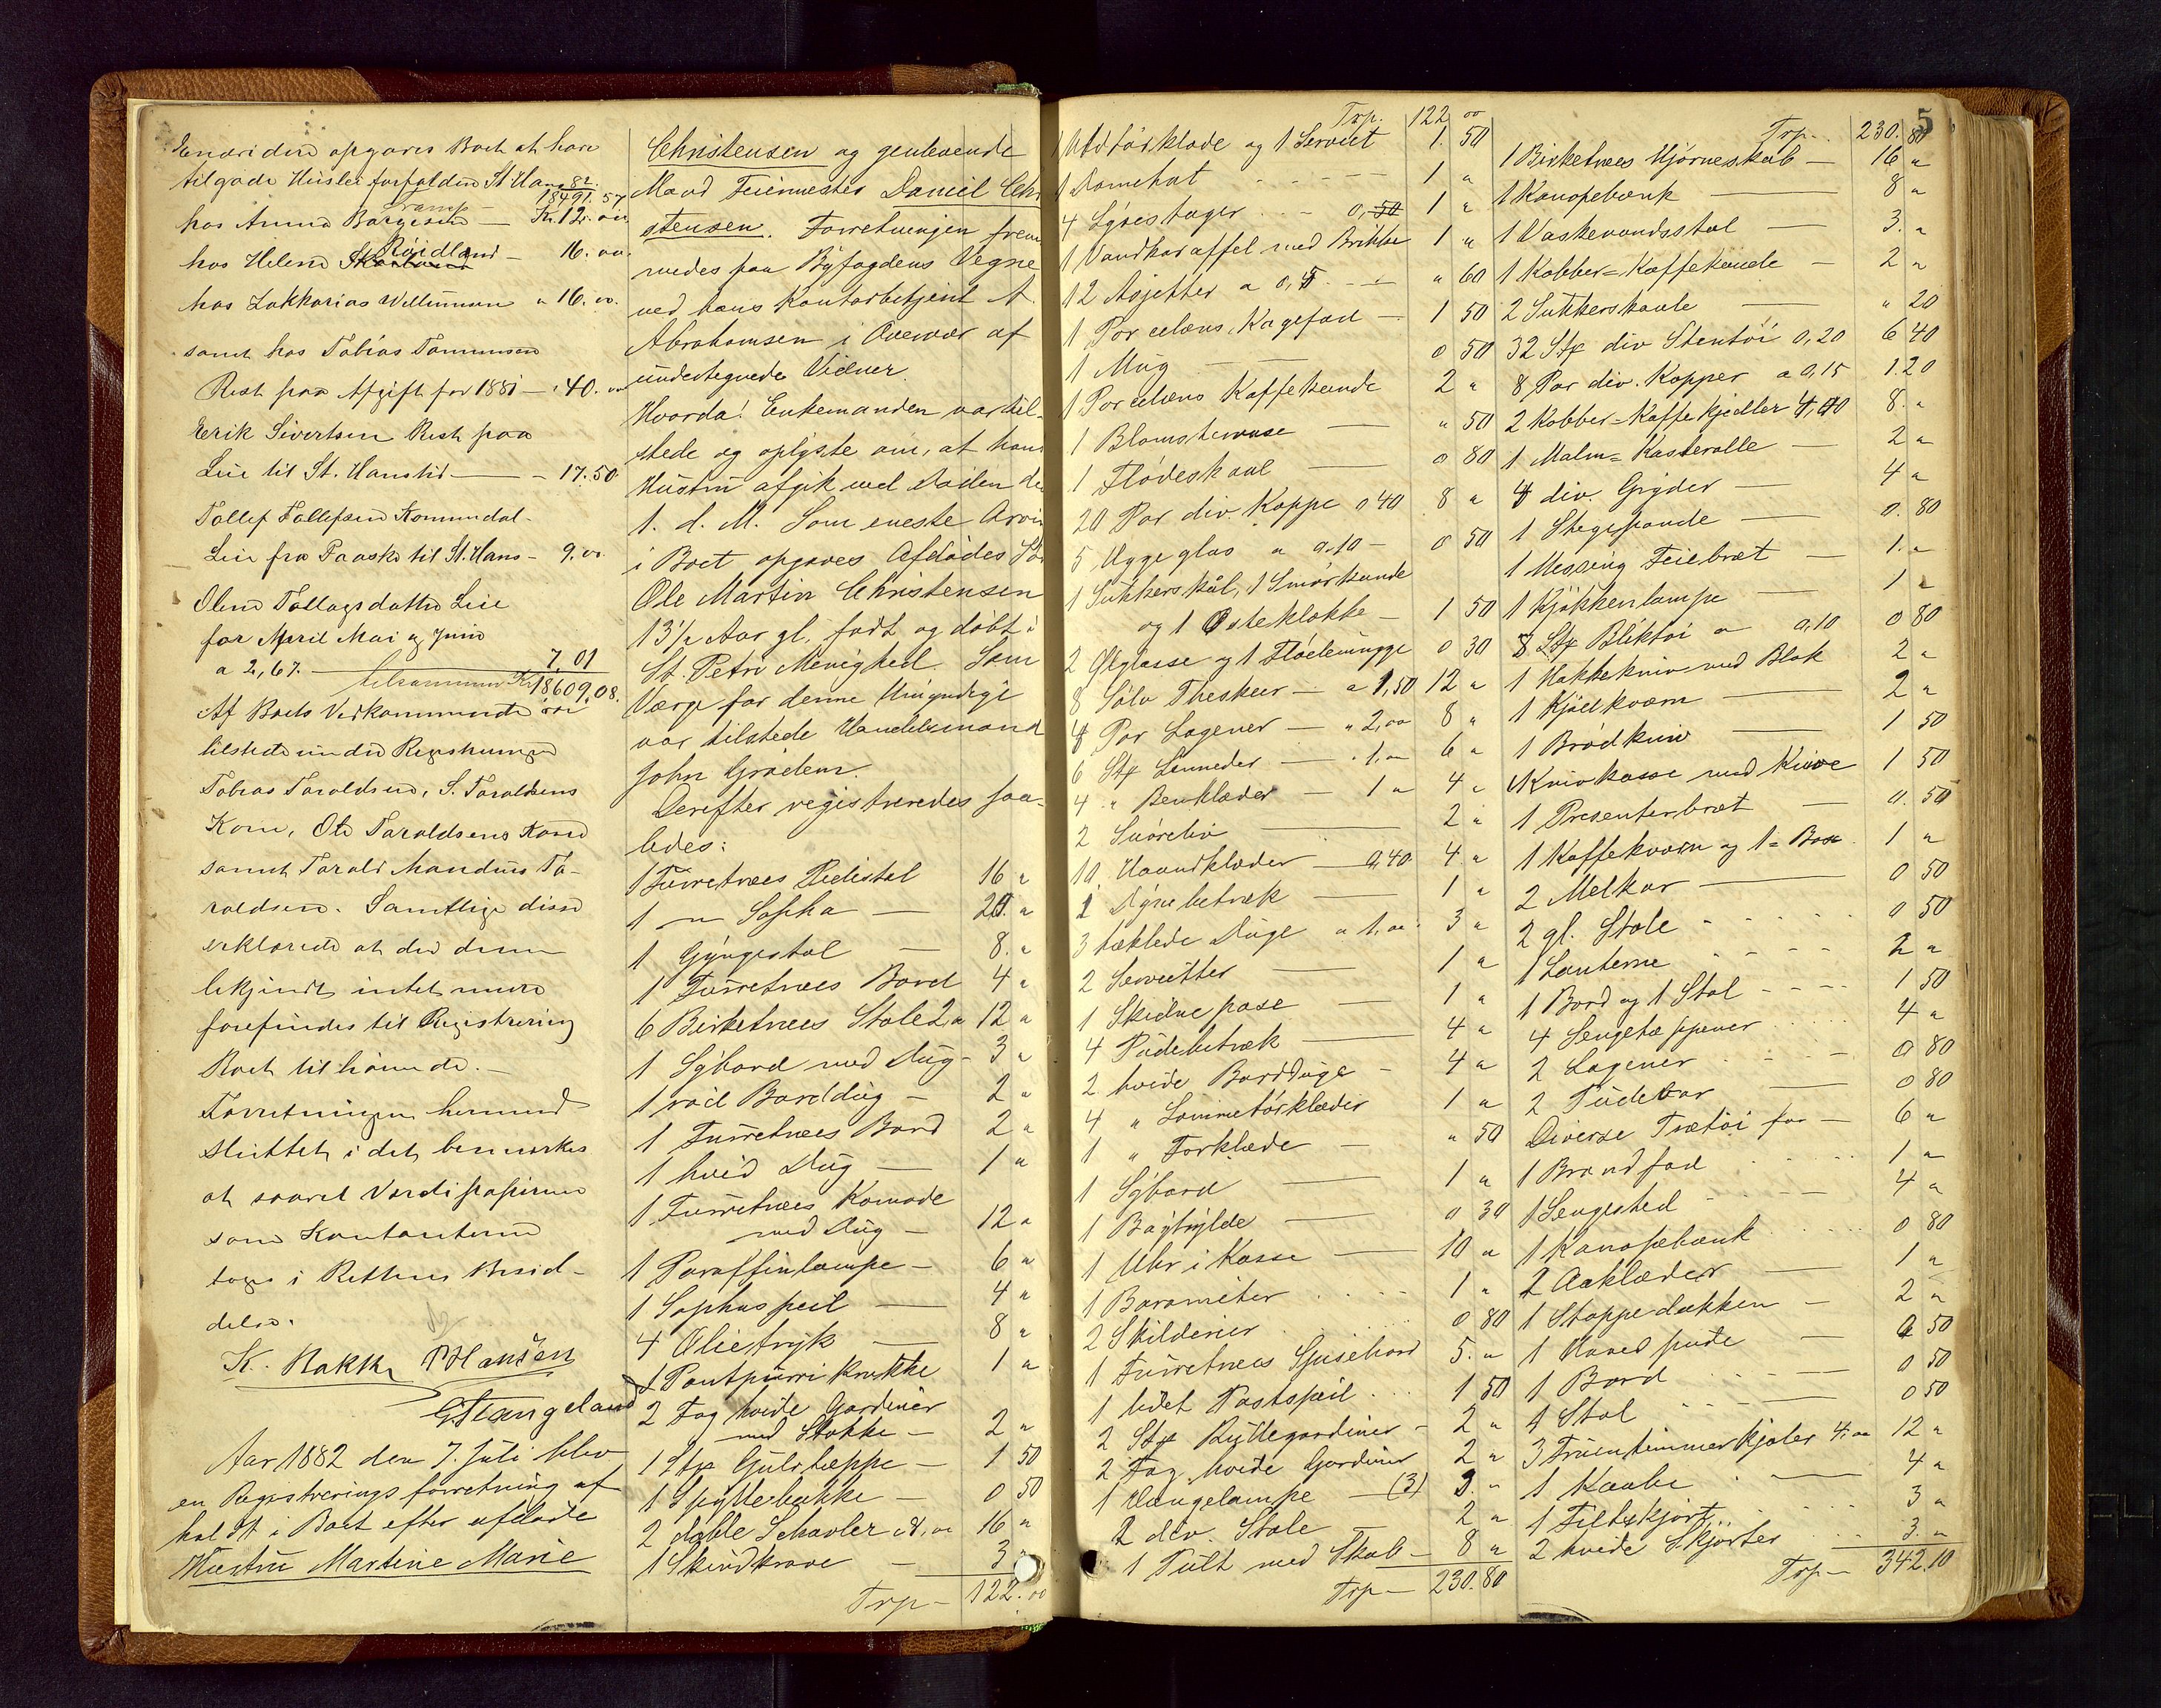 Endvidere opgaves Boet at have
tilgode Huusleie forfalden St Hans 82.
Transp 18491.57
hos Anna Børgesen — Kr. 12. oo
hos Helene Røidland — 16. oo.
hos Zakkarias Wellumsen " 16. oo.
samt hos Tobias Tommesen
Rest paa Afgift for 1881 — 40. oo
Erik Sivertsen Rest paa
Leie til St. Hanstid — - 17.50
Tollef Tollefsen Romundal
Leie fra Paaske til St. Hans - 9. oo.
Olene Tollagsdatter Leie
for April Mai og Juni
a 2,67. — 7,01
tilsammen Kr. 18609,08.
Af Boets Vedkommende var
tilstede under Registreringen
Tobias Taraldsen, S. Taraldsens
Kone, Ole Taraldsens Kone
samt Tarald Mandius Ta-
raldsen. Samtlige disse
erklærede at der dem
bekjendt intet mere
forefindes til Registrering
Boet tilhørende. —
Forretningen hermed
sluttet i det bemærkes
at saavel Værdipapirerne
som Kontanterne
toges i Rettens Besid-
delse.
K. Rakke P Hansen
G Stangeland
Aar 1882 den 7. Juli blev
en Registreringsforretning af
holdt i Boet efter afdøde
Hustru Martine Marie
Christensen og gjenlevende
Mand Feiermester Daniel Chri
stensen. Forretningen frem
medes paa Byfogdens Vegne
ved hans Kontorbetjent A.
Abrahamsen i Overvær af
undertegnede Vidner.
Hvorda! Enkemanden var til-
stede og oplyste om, at hans
Hustru afgik ved Døden den
1. d. M. Som eneste Arvin
i Boet opgaves Afdødes Søn
Ole Martin Christensen
13½ Aar gl. født og døbt i
St. Petri Menighed. Som
Værge for denne Umyndige
var tilstede Handelsmand
John Grødem.
Derefter registreredes saa-
ledes:
1 Furretræes Pidestal 16 "
1 — " Sopha — 20. "
1 Gyngestol — 8. "
1 Furretræes Bord 4 "
6 Birketræes Stole 2,oo 12 "
1 Sybord med Dug - 3 "
1 rød Borddug — 2 "
1 Furretræes Bord 2 "
1 hvid Dug — 1 "
1 Furretræes Komode
med Dug — 12 "
1 Paraffinlampe — 6 "
1 Sophaspeil — 4 "
4 Olietryk — 8 "
1 Poutpurri krukke 1 "
2 Fag hvide Gardiner
med Stokke — 2 "
1 Stk Gulvtæppe — 1 50
1 Spyttebakke — 0 50
2 doble Schavler a 8,oo 16 "
1 Skindkrave — 3 "
Trp — 122. oo
Trp. 122 oo
1 Uldtørklæde og 1 Serviet 1. 50
1 Damehat - - - - - 1 "
4 Lysestager - - 0,50 1 "
1 Vandkaraffel med Brikke 1 "
12 Asjetter a 0,5 - - - " 60
1 Porcelæns Kagefad — 1 50
1 Mug — 0 50
1 Porcelæns Kaffekande 2 "
1 Blomstervase — " 50
1 Flødeskaal — 0 80
20 Par div. Koppe 0 40 8 "
5 Æggeglas a 0,10 — 0 50
1 Sukkerskål, 1 Smørkande
og 1 Osteklokke — 1 50
2 Ølglasse og 1 Flødemugge 0 30
8 Sølv Theskeer — a 1,50 12 "
4 Par Lagener — " 2,oo 8 "
6 Stk Linneder — " 1,oo 6 "
4 " Benklæder — 1 " 4 "
2 Snøreliv — 2 "
10 Haandklæder — 0,40 4. "
1 Dynebetræk — 1 "
3 hæklede Duge " 1,oo. 3 "
2 Servietter — 1 "
1 Skidne pose — 1 "
4 Pudebetræk — 4 "
2 hvide Bordduge — 4 "
4 " Lommetørklæder 1 "
1 " Forklæde — " 50
1 Sybord — 1 "
1 Boghylde — 0 30
1 Uhr i Kasse — 10 "
1 Barometer . . . . 1 "
2 Skilderier . . . . 0 80
1 Furretræes Spisebord 5. "
1 lidet Postspeil . . . 1 50
2 Stk Rullegardiner - 2 "
2 Fag hvide Gardiner 2 "
1 Hængelampe — (3) 3. "
2 div. Stole 2 "
1 Pult med Skab — 8 "
Trp — 230.80
5
Trp. 230. 80
1 Birketræes Hjørneskab — 16 "
1 Kanapebænk — 8 "
1 Vaskevandsstol — 3. "
1 Kobber= Kaffekande — 2 "
2 Sukkerskaale — " 20
32 Stk div Stentøi 0,20 6 40
8 Par div. Kopper a 0,15 1.20
2 Kobber=Kaffekjedler 4,00 8. "
1 Malm= Kasterolle — 2 "
4 div. Gryder — 4 "
1 Stegepande — 0. 80
1 Messing Feiebræt — 1. "
1 Kjøkkenlampe — 1 "
8 Stk Bliktøi a 0,10 0 80
1 Hakkekniv med Blok 2 "
1 Kjødkværn — 2 "
1 Brødkniv — 1 50
1 Knivkasse med Knive 1 50
1 Presenterbræt — 0. 50
1 Kaffekværn og 1= Box 1 "
2 Melkar — 0 50
2 gl. Stole - - - - - 0 50
1 Lanterne - - - - 2 "
1 Bord og 1 Stol - - - - 1 50
4 Sengetæppener . . . . 4 "
2 Lagener - - - - - 0 80
2 Pudevar — 0 80
Diverse Trætøi for — 6 "
1 Brændfad . . . . . 1 "
1 Sengested - . . . - 4 "
1 Kanapebænk . . . . . 0 80
2 Aaklæder — 1 "
1 Stoppedækken — 2 "
1 Hovedpude — 0 50
1 Bord . . . — 0 50
1 Stol - - — 0 50
3 Fruentimmerkjoler 4,oo 12 "
1 Kaabe . — 4 "
1 Filtskjørt . . . . . . 3 "
2 hvide Skjørter . . . 3. "
Trp — 342.10